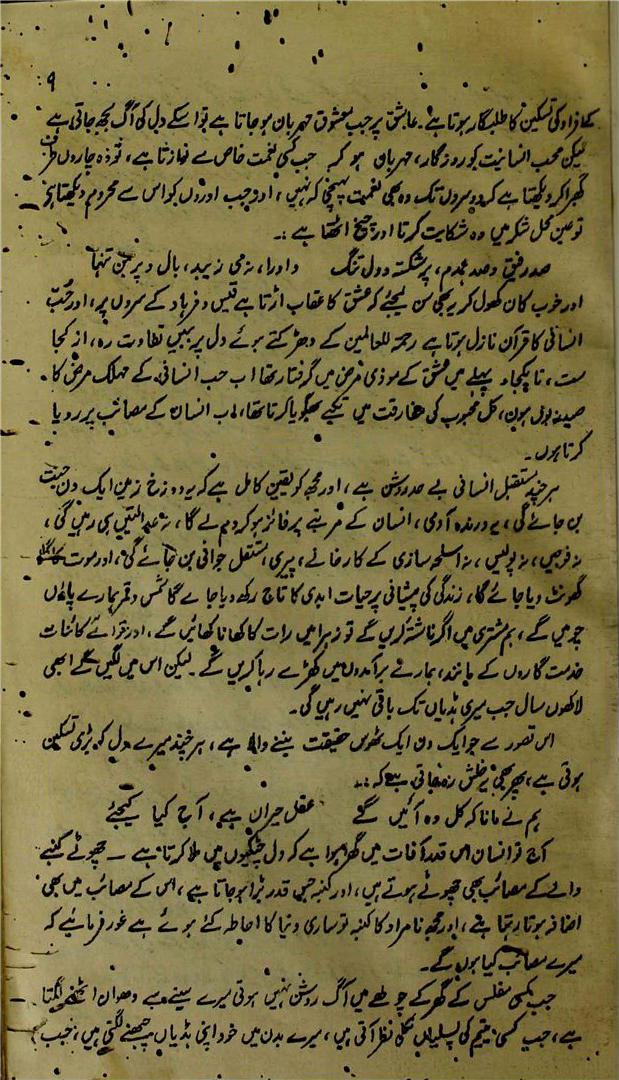 ۹
کے افراد کی تسکین کا طلبگار ہوتا ہے۔ عاشق پر جب معشوق مہربان ہو جاتا ہے تو اسکے دل کی آگ بجھ جاتی ہے
لیکن محب انسانیت کو روزگار، مہربان ہو کر جب کسی نعمت خاص سے نوازتا ہے، تو وہ چاروں طرف
گھبرا کر دیکھتا ہے کہ دوسروں تک وہ بھی نعمت پہنچی کہ نہیں، اور جب اوروں کو اس سے محروم دیکھتا ہے
تو عین محل شکر میں وہ شکایت کرتا اور چیخ اٹھتا ہے :۔
صد رفیق و صد ہمدم، پر شکستہ و دل تنگ داورا، نہ می زیبد، بال و پر بمن تنہا
اور خوب کان کھول کر یہ بھی سن لیجئے کہ عشق کا عقاب اڑتا ہے قیس و فرہاد کے سروں پر، اور حُبِّ
انسانی کا قرآن نازل ہوتا ہے رحمۃ للعالمین کے دھڑکتے ہوئے دل پر ببیں تفاوت رہ، از کجا
ست، تا بکجا۔ پہلے میں عشق کے موذی مرض میں گرفتار تھا اب حب انسانی کے مہلک مرض کا
صید زبوں ہوں، کل محبوب کی مفارقت میں تکیے بھگویا کرتا تھا، اب انسان کے مصائب پر رویا
کرتا ہوں۔
ہر چند مستقبل انسانی بے حد روشن ہے، اور مجھ کو یقین کامل ہے کہ یہ دوزخ زمین ایک دن جنت
بن جائے گی، یہ درندہ آدمی، انسان کے مرتبے پر فائز ہو کر دم لے گا، نہ عدالتیں ہی رہیں گی،
نہ فوجیں، نہ پولیس، نہ اسلحہ سازی کے کارخانے، پیری، مستقل جوانی بن جائے گی، اور موت کا گلا
گھونٹ دیا جائے گا، زندگی کی پیشانی پر حیات ابدی کا تاج رکھ دیا جائے گا شمس و قمر ہمارے پاؤں
چومیں گے، ہم مشتری میں اگر ناشتہ کریں گے تو زہرا میں رات کا کھانا کھائیں گے۔ اور قوائے کائنات
خدمت گاروں کے مانند، ہمارے برآمدوں میں کھڑے رہا کریں گے۔ لیکن اس میں لگیں گے ابھی
لاکھوں سال جب میری ہڈیاں تک باقی نہیں رہیں گی۔
اس تصور سے جو ایک دن ایک ٹھوس حقیقت بننے والا ہے، ہر چند میرے دل کو بڑی تسکین
ہوتی ہے، پھر بھی یہ خلش رہ جاتی ہے کہ :۔
ہم نے مانا کہ کل وہ آئیں گے عقل حیران ہے، آج کیا کیجئے
آج تو انسان اس قدر آفات میں گھرا ہوا ہے کہ دل چٹکیوں میں ملا کرتا ہے۔ چھوٹے کنبے
والے کے مصائب بھی چھوٹے ہوتے ہیں، اور کنبہ جس قدر بڑا ہو جاتا ہے، اس کے مصائب میں بھی
اضافہ ہوتا رہتا ہے، اور مجھ نامراد کا کنبہ تو ساری دنیا کا احاطہ کئے ہوئے ہے غور فرمائیے کہ
میرے مصائب کیا ہوں گے۔
جب کسی مفلس کے گھر کے چولھے میں آگ روشن نہیں ہوتی میرے سینے سے دھواں اٹھنے لگتا
ہے، جب کسی یتیم کی پسلیاں نکلی نظر آتی ہیں، میرے بدن میں خود اپنی ہڈیاں چبھنے لگتی ہیں، جب